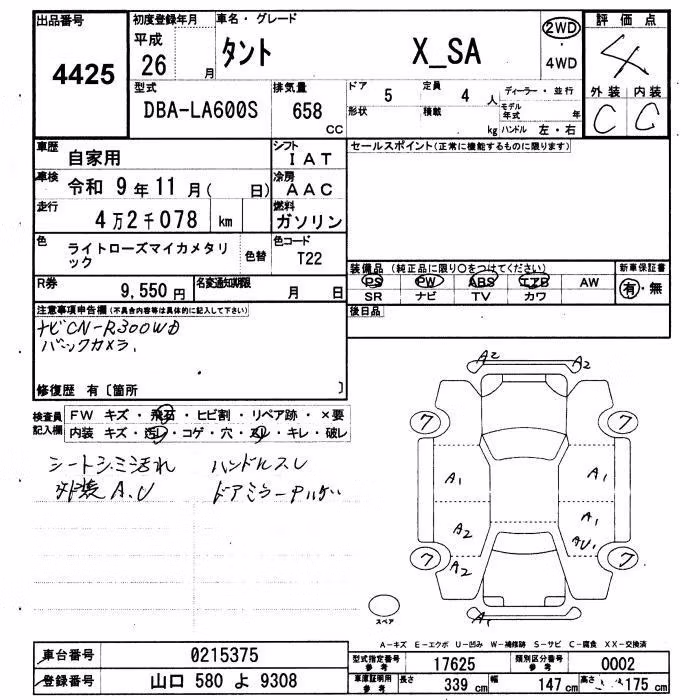 出品番号
4425
初度登録年月
平成
26
月
車名・グレード
タント
X_SA
2WD
・
4WD
評価点
4
外装 内装
C C
型式
DBA-LA600S
排気量
658
CC
ドア
5
定員
4
人
形状
積載
kg
ディーラー・並行
モデル
年式
年
ハンドル 左・右
車歴
自家用
シフト
IAT
車検
令和 9年11月( 日)
冷房
AAC
走行
4万2千078 km
燃料
ガソリン
色
ライトローズマイカメタリ
ック
色替
色コード
T22
R券
9,550円
名変通知期限
月 日
セールスポイント(正常に機能するものに限ります)
装備品(純正品に限り○をつけてください)
新車保証書
PS PW ABS エアB AW
有・無
SR ナビ TV カワ
後日品
注意事項申告欄(不具合内容等は具体的に記入して下さい)
ナビCN-R300WD
バックカメラ
修復歴 有〔箇所 〕
検査員
記入欄
FW キズ・飛石・ヒビ割・リペア跡・×要
内装 キズ・汚レ・コゲ・穴・スレ・キレ・破レ
シートシミ汚れ ハンドルスレ
外装 A.U
A2 A2
7 7
A1 A1
A2 A1
AU1
7 7
A2
A1
スペア
A-キズ E-エクボ U-凹み W-補修跡 S-サビ C-腐食 XX-交換済
車台番号
0215375
登録番号
山口 580 よ 9308
型式指定番号
参考
17625
類別区分番号
参考
0002
車庫証明用
参考
長さ
339 cm
幅
147 cm
高さ
175 cm